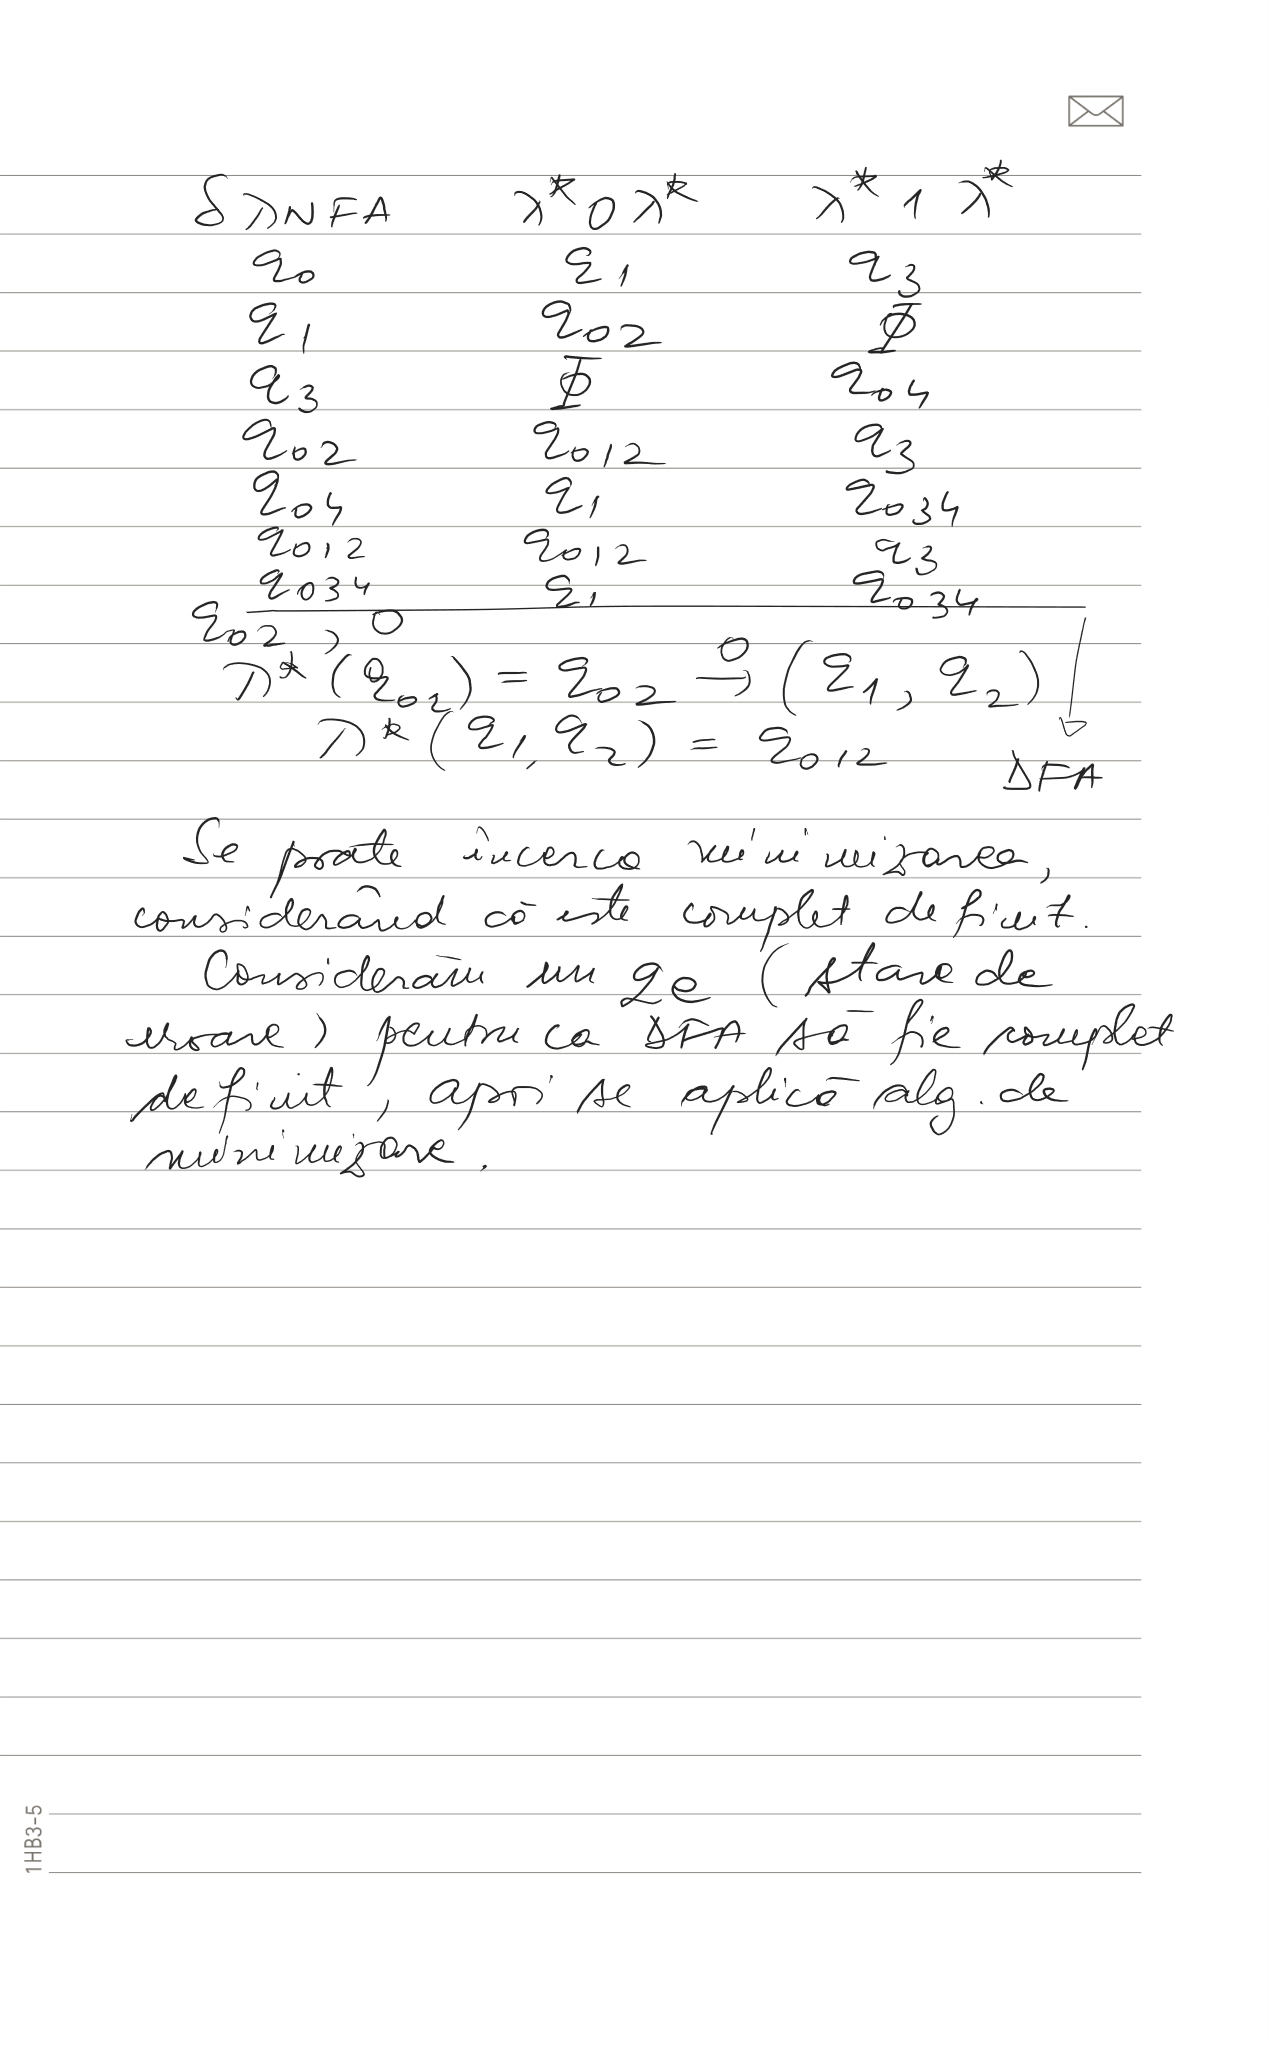 δλNFA λ*0λ* λ*1λ*
q0 q1 q3
q1 q02 Φ
q3 Φ q04
q02 q012 q3
q04 q1 q034
q012 q012 q3
q034 q1 q034
q02, 0
λ*(q02) = q02 0→ (q1, q2)
λ*(q1, q2) = q012
DFA
Se poate încerca minimizarea,
considerând că este complet definit.
Considerăm un qe (stare de
eroare) pentru ca DFA să fie complet
definit, apoi se aplică alg. de
minimizare.
1HB3-5